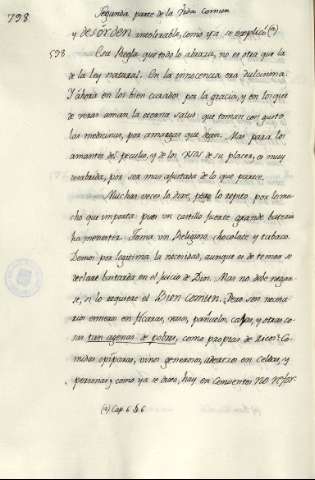 798
Segunda parte de la Vida Comun
y desorden intolerable, como ya se esplicó (*)
598. Esta Regla que todo lo abraza, no es otra que la
de la ley natural. En la inocencia era dulcissima.
Y ahora en los bien curados por la gracia, y en los que
de veras aman la eterna salud que toman con gusto
las medicinas, por amargas que sean. Mas para los
amantes del peculio, y de los de su placer, es muy
por ser mas ajustada de lo que parece.
Muchas veces lo dixe, pero lo repito por lo mu-
cho que importa pues un castillo fuerte grande bateria
ha menester. Toma un Religioso chocolate y tabaco.
Demos por legitima la necesidad, aunque es de temer se
declare bastarda en el juicio de Dios. Mas no debe negar-
se, si lo requiere el Bien comun. Pero son necesa-
rios enteros en xicaras, vasos, pañuelos, caxas, y otras co-
sas tan agenas de pobres, como propias de ricos? Co-
midas opiparas, vinos generosos, aderezos en Celdas, y
personas; como ya se dixo, hay en Conventos no refor-
(*) Cap. 6 § 6